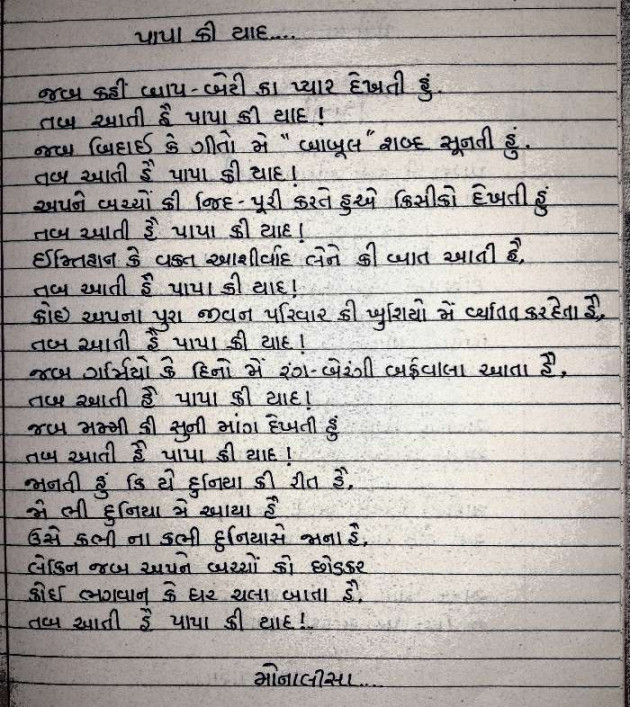 પાપા કી યાદ....
જબ કહી બાપ-બેટી કા પ્યાર દેખતી હું.
તબ આતી હૈ પાપા કી યાદ!
જબ બિદાઈ કે ગીતો મે "બાબૂલ" શબ્દ સૂનતી હું.
તબ આતી હૈ પાપા કી યાદ!
અપને બચ્ચોં કી જિદ-પૂરી કરતે હુએ કિસીકો દેખતી હું
તબ આતી હૈ પાપા કી યાદ!
ઈમ્તિહાન કે વક્ત આશીર્વાદ લેને કી બાત આતી હૈ,
તબ આતી હૈ પાપા કી યાદ!
કોઈ અપના પુરા જીવન પરિવાર કી ખુશિયો મેં વ્યતિત કરદેતા હૈ,
તબ આતી હૈ પાપા કી યાદ!
જબ ગર્મિયો કે દિનો મેં રંગ-બેરંગી બર્ફવાલા આતા હૈ,
તબ આતી હૈ પાપા કી યાદ!
જબ મમ્મી કી સુની માંગ દેખતી હું
તબ આતી હૈ પાપા કી યાદ!
જાનતી હું કિ યે દુનિયા કી રીત હૈ,
જો ભી દુનિયા મે આયા હૈ
ઉસે કભી ના કભી દુનિયાસે જાના હૈ,
લેકિન જબ અપને બચ્ચોં કો છોડકર
કોઈ ભગવાન કે ઘર ચલા જાતા હૈ,
તબ આતી હૈ પાપા કી યાદ!
મોનાલીસા....